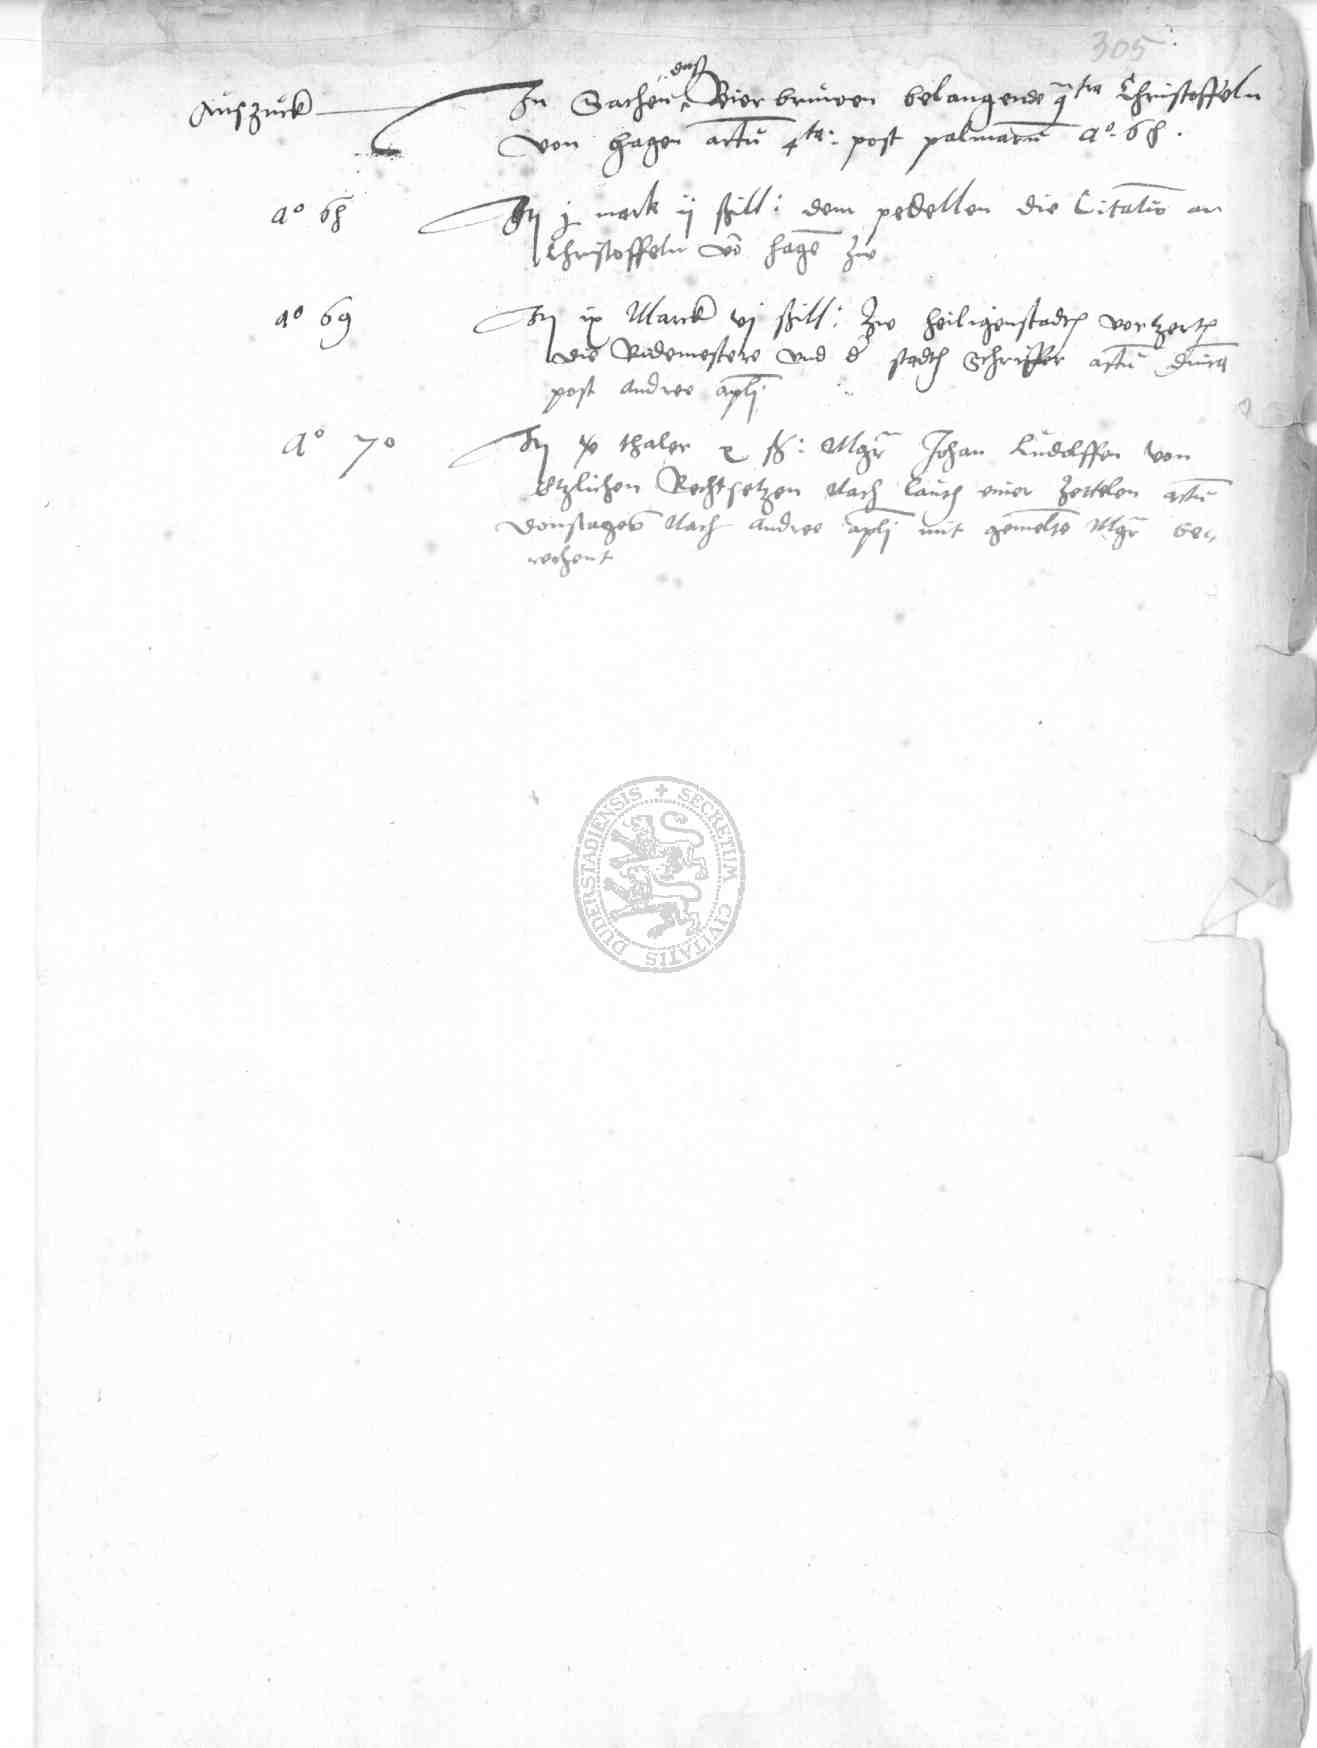 305
Auszuck In Sachen das Bierbruwen belangende 9tra Christoffeln
von Hagen actu 4ta: post palmaru a° 68.
a° 68 It j mark ij ßill: dem pedellen die Citatio an
Christoffeln vo hage zw
a° 69 It ix Marck vj ßill: Zw heiligenstadt vertzert
die Rademestere vnd d stadth Schriffer actu dnica
post andree apli
A° 70 It thaler x ß: Mgr Johan Ludolffen von
etzlichen Rechtsetzen Nach lauth einer Zettelen actu
donstages Nach andree apli mit gemelte Mgr be„
rechent
SECRETUM CIVITATIS DUDERSTADIENSIS